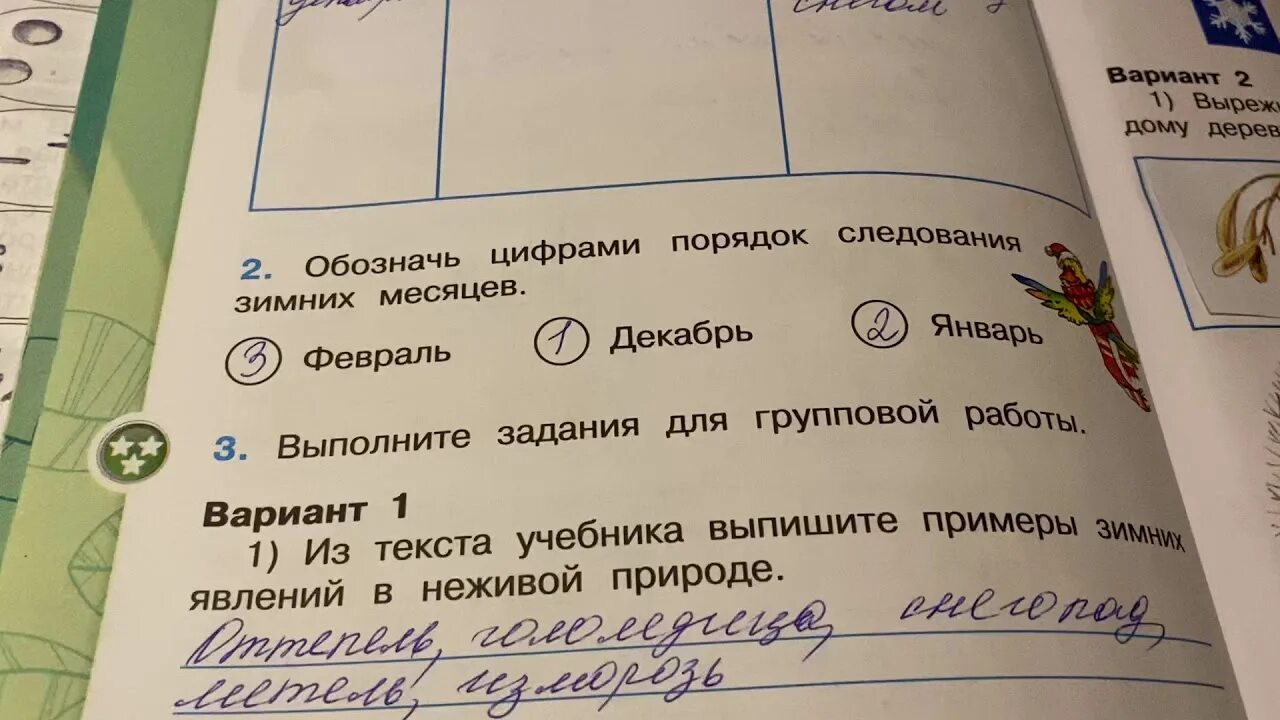 снегом
2. Обозначь цифрами порядок следования
зимних месяцев.
3 Февраль 1 Декабрь 2 Январь
3. Выполните задания для групповой работы.
Вариант 1
1) Из текста учебника выпишите примеры зимних
явлений в неживой природе.
Оттепель, гололедица, снегопад,
метель, изморозь
Вариант 2
1) Выреж
дому дерев